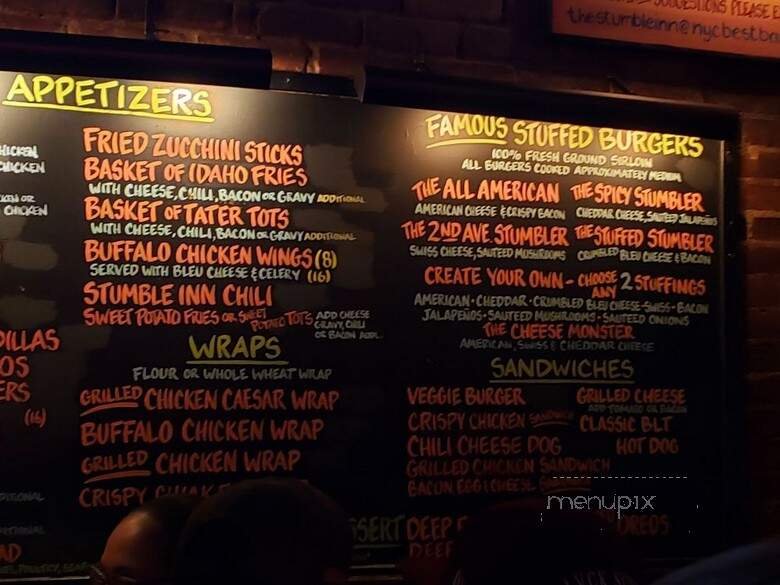 SUGGESTIONS PLEASE
thestumbleinn@nycbestbar
APPETIZERS
CHICKEN
CHICKEN
OR
CHICKEN
FRIED ZUCCHINI STICKS
BASKET OF IDAHO FRIES
WITH CHEESE, CHILI, BACON OR GRAVY ADDITIONAL
BASKET OF TATER TOTS
WITH CHEESE, CHILI, BACON OR GRAVY ADDITIONAL
BUFFALO CHICKEN WINGS (8)
SERVED WITH BLEU CHEESE & CELERY (16)
STUMBLE INN CHILI
SWEET POTATO FRIES OR SWEET POTATO TOTS ADD CHEESE
GRAVY, CHILI
OR BACON ADDL.
DILLAS
OS
ERS
(16)
WRAPS
FLOUR OR WHOLE WHEAT WRAP
GRILLED CHICKEN CAESAR WRAP
BUFFALO CHICKEN WRAP
GRILLED CHICKEN WRAP
CRISPY
FAMOUS STUFFED BURGERS
100% FRESH GROUND SIRLOIN
ALL BURGERS COOKED APPROXIMATELY MEDIUM
THE ALL AMERICAN THE SPICY STUMBLER
AMERICAN CHEESE & CRISPY BACON CHEDDAR CHEESE, SAUTEED JALAPEÑOS
THE 2ND AVE. STUMBLER THE STUFFED STUMBLER
SWISS CHEESE, SAUTEED MUSHROOMS CRUMBLED BLEU CHEESE & BACON
CREATE YOUR OWN - CHOOSE ANY 2 STUFFINGS
AMERICAN · CHEDDAR · CRUMBLED BLEU CHEESE · SWISS · BACON
JALAPEÑOS · SAUTEED MUSHROOMS · SAUTEED ONIONS
THE CHEESE MONSTER
AMERICAN, SWISS & CHEDDAR CHEESE
SANDWICHES
VEGGIE BURGER GRILLED CHEESE
ADD TOMATO OR BACON
CRISPY CHICKEN SANDWICH CLASSIC BLT
CHILI CHEESE DOG HOT DOG
GRILLED CHICKEN SANDWICH
BACON EGG & CHEESE
SSERT DEEP OREOS
DEEP
menupix